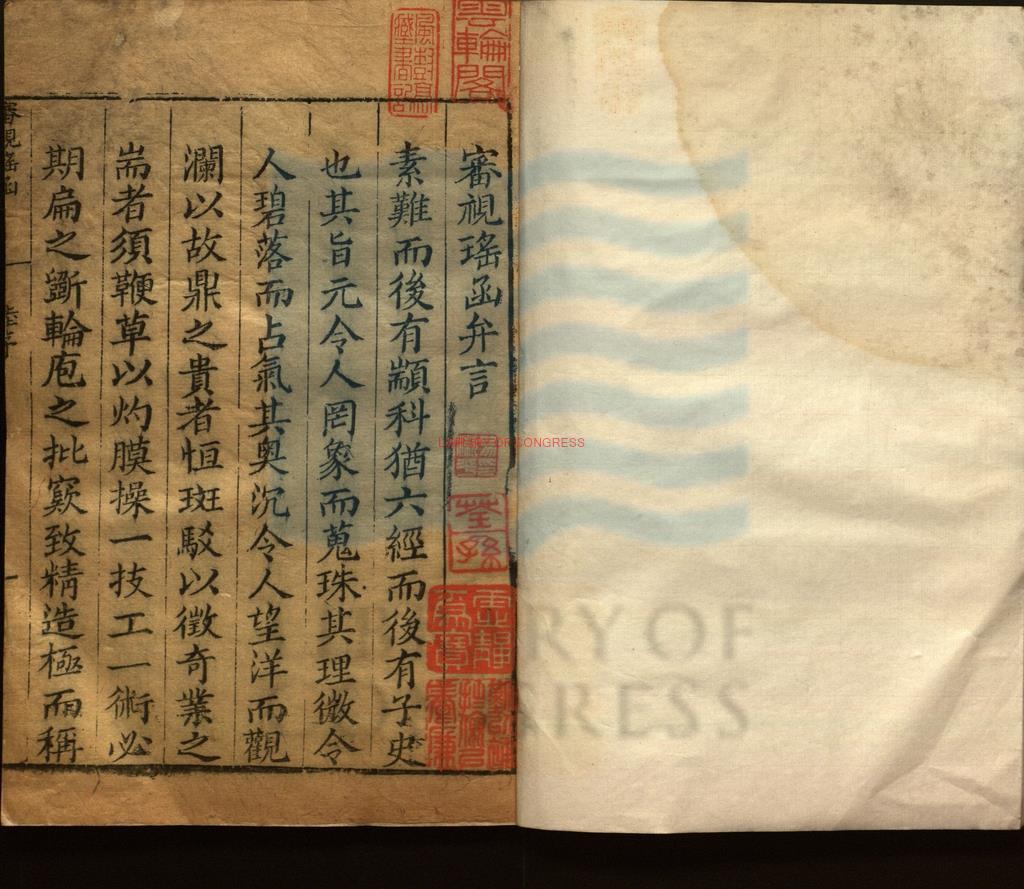 審視瑤函弁言
素難而後有顓科猶六經而後有子史
也其旨元令人罔象而蒐珠其理微令
人碧落而占氣其奥沉令人望洋而觀
瀾以故鼎之貴者恒斑駁以徵奇業之
耑者須鞭草以灼膜操一技工一術必
期扁之斵輪庖之批窾致精造極而稱
審視瑤函
雲輪閣
荃孫
LIBRARY OF CONGRESS
RY OF
RESS